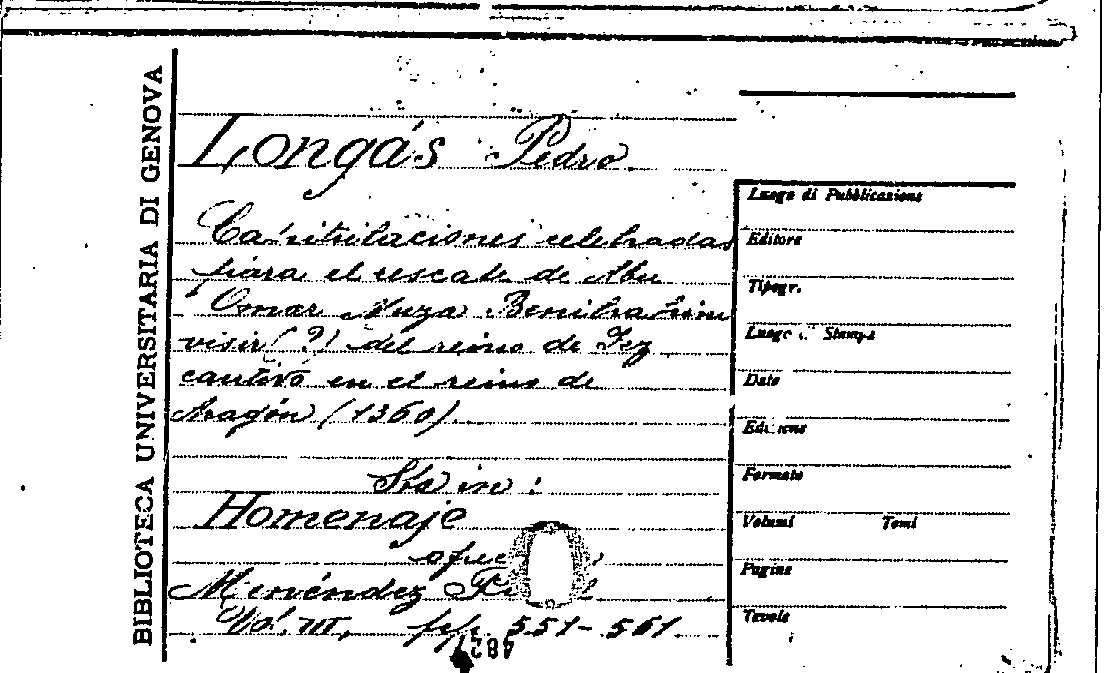 BIBLIOTECA UNIVERSITARIA DI GENOVA
Longás Pedro
Capitulaciones celebradas
para el rescate de Abu
Omar Muza Benibrahim
visir (?) del reino de Fez
cautivo en el reino de
Aragón (1360).
Sta in:
Homenaje
Menéndez
Vol. III, pp. 551-561
482
Luogo di Pubblicazione
Editore
Tipogr.
Luogo di Stampa
Data
Edizione
Formato
Volumi Tomi
Pagine
Tavole